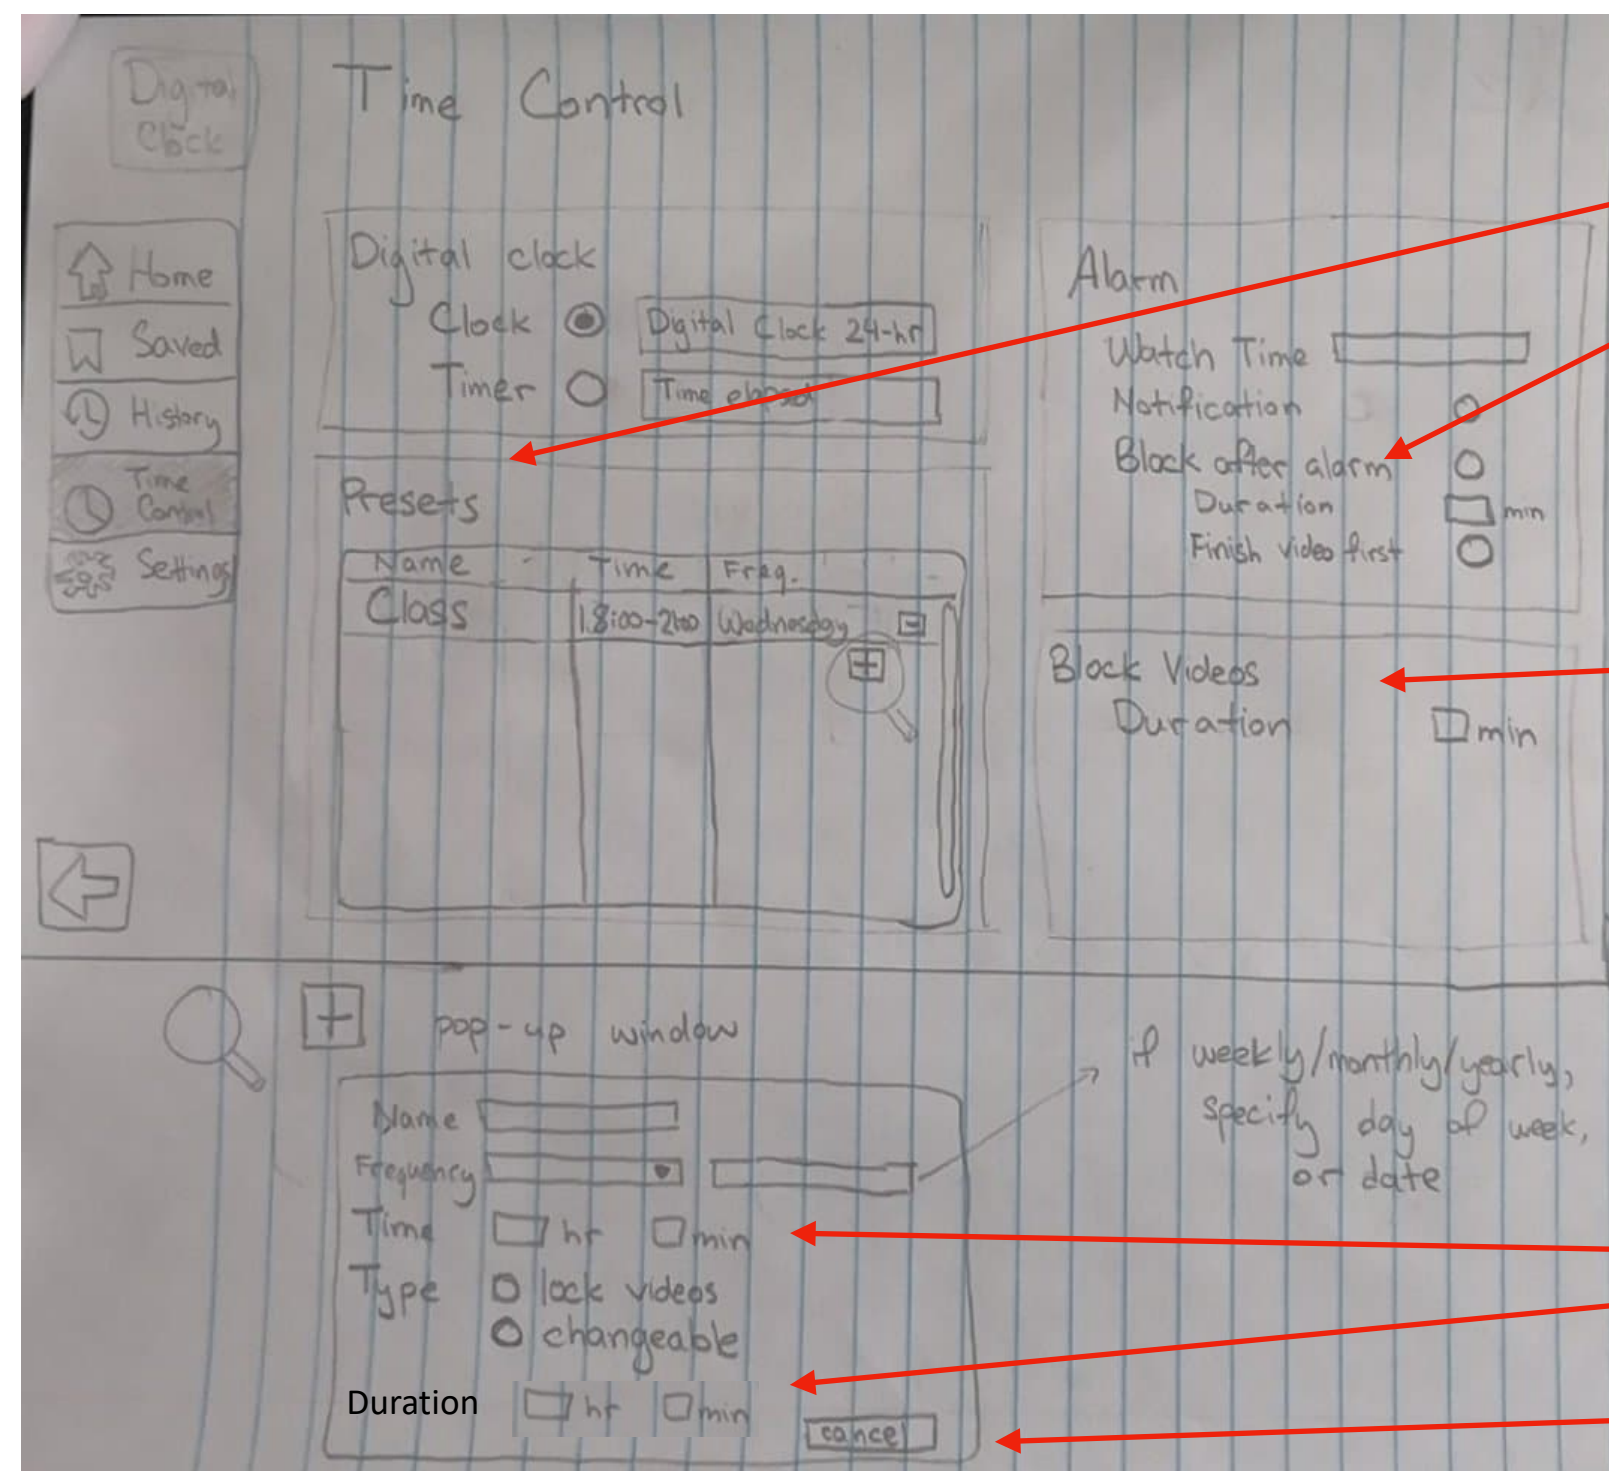 Digital
Clock
Time Control
Home
Saved
History
Time
Control
Settings
Digital clock
Clock Digital Clock 24-hr
Timer Time elapsed
Presets
Name Time Freq.
Class 18:00-21:00 Wednesday
Alarm
Watch Time
Notification
Block after alarm
Duration min
Finish video first
Block Videos
Duration min
pop-up window
Name
Frequency
Time hr min
Type lock videos
changeable
Duration hr min
cancel
if weekly/monthly/yearly,
specify day of week,
or date